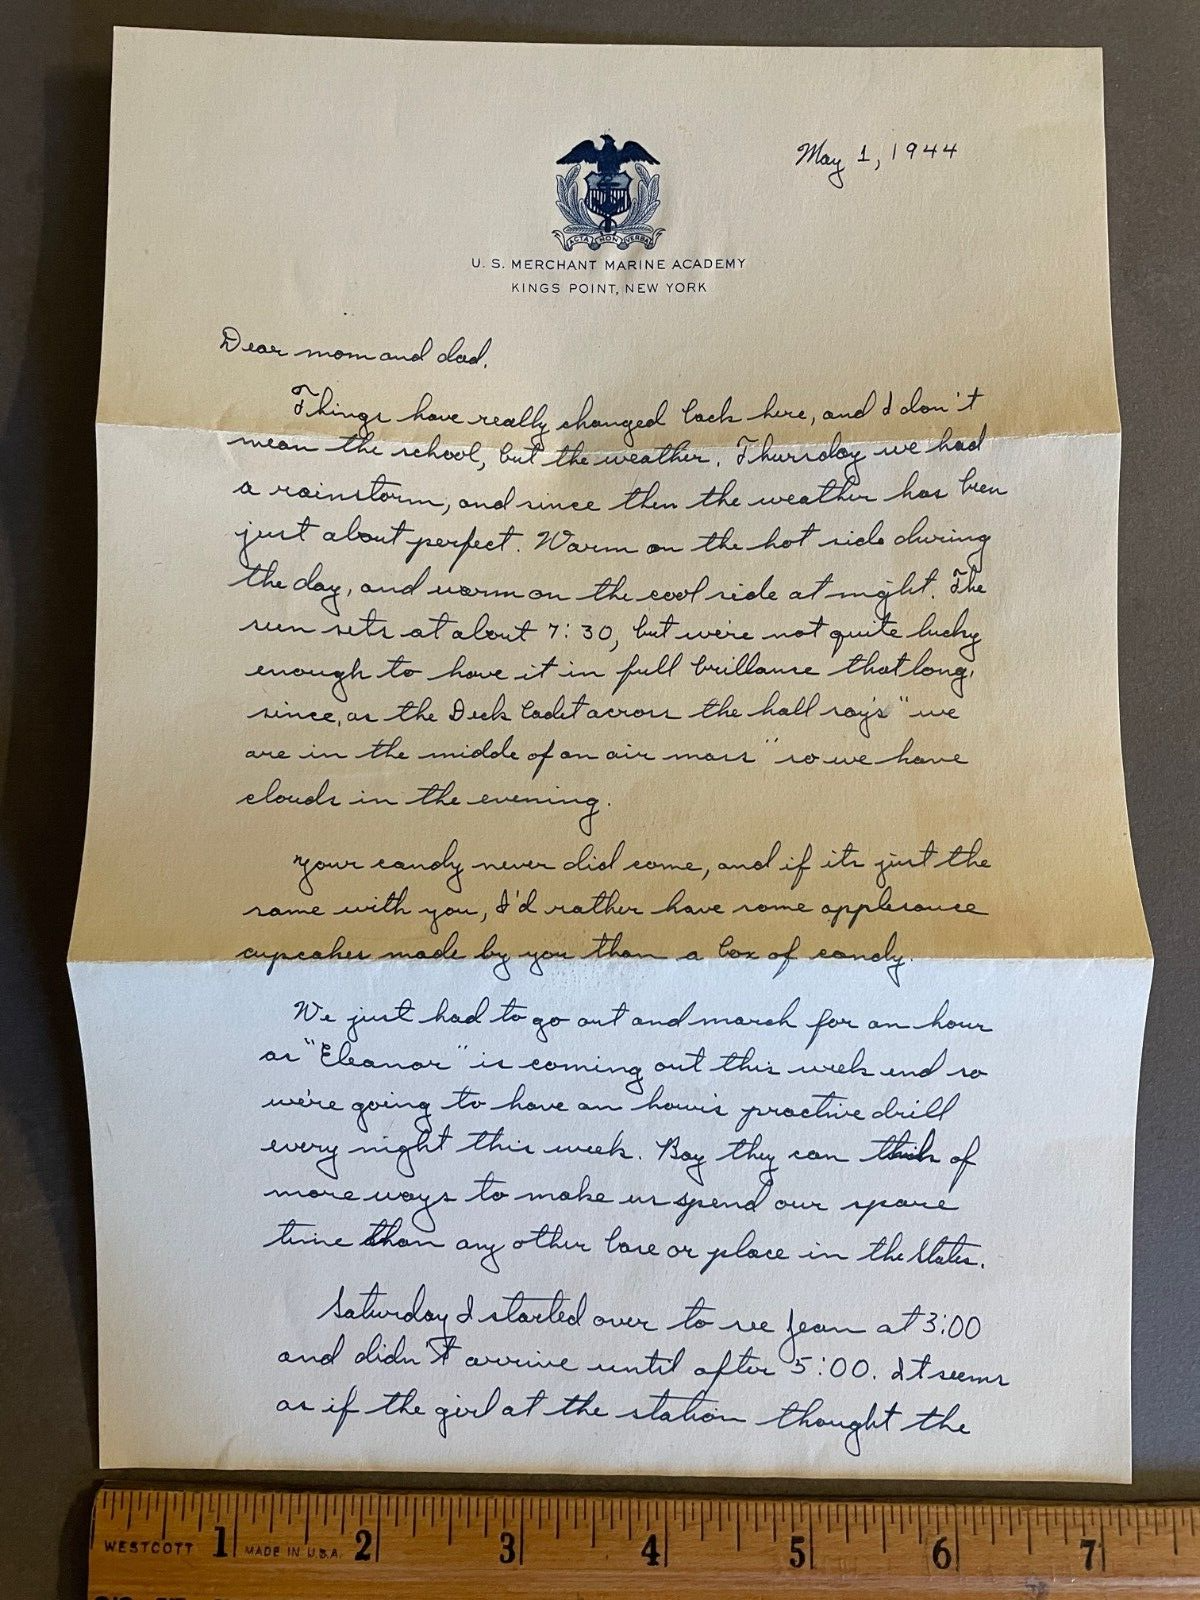 May 1, 1944
ACTA NON VERBA
U. S. MERCHANT MARINE ACADEMY
KINGS POINT, NEW YORK
Dear mom and dad,
Things have really changed back here, and I don't
mean the school, but the weather. Thursday we had
a rainstorm, and since then the weather has been
just about perfect. Warm on the hot side during
the day, and warm on the cool side at night. The
sun sets at about 7:30, but we're not quite lucky
enough to have it in full brillanse that long,
since, as the Deck Cadet across the hall say's "we
are in the midde of an air mass" so we have
clouds in the evening.
Your candy never did come, and if its just the
same with you, I'd rather have some applesauce
cupcakes made by you than a box of candy.
We just had to go out and march for an hour
as "Eleanor" is coming out this week end so
we're going to have an hour's practive drill
every night this week. Boy they can think of
more ways to make us spend our spare
time than any other base or place in the States.
Saturday I started over to see Jean at 3:00
and didn't arrive until after 5:00. It seems
as if the girl at the station thought the
WESTCOTT MADE IN U.S.A.
1 2 3 4 5 6 7